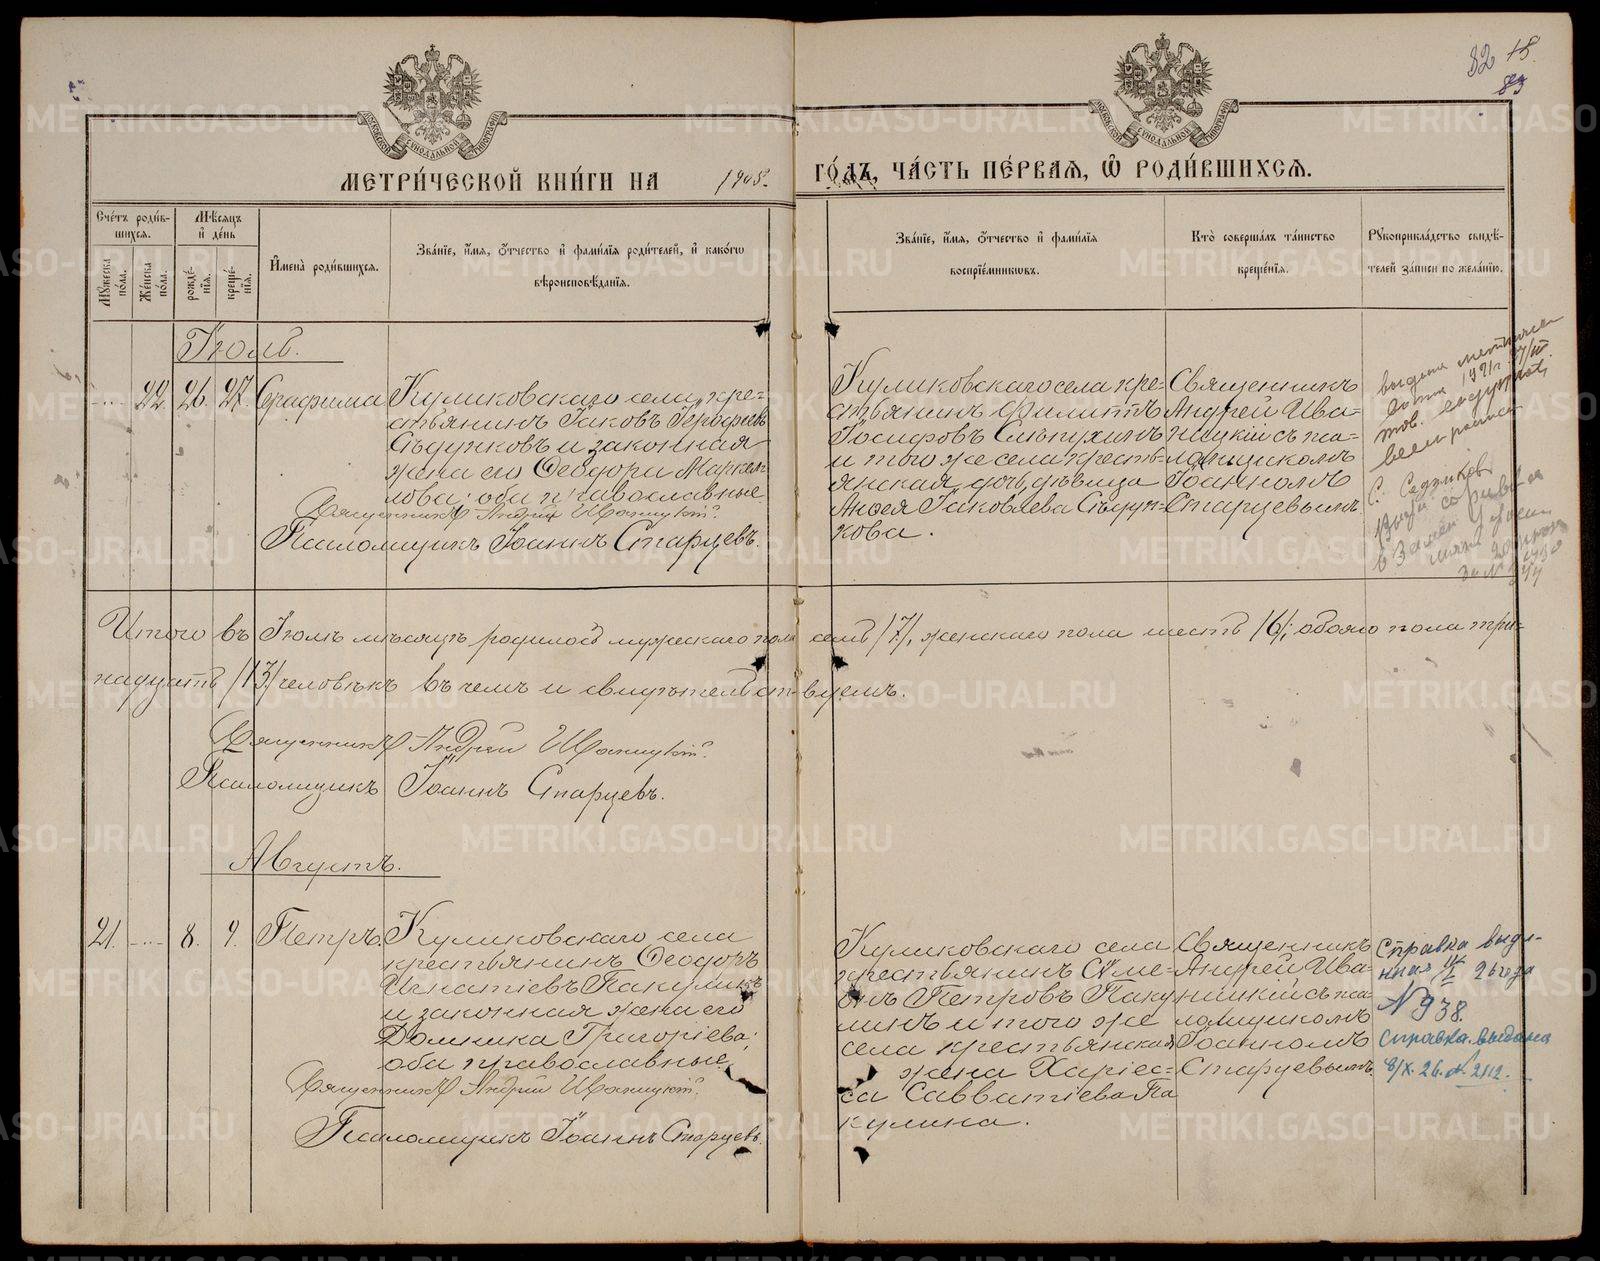 82 18.
83
МОСКОВСКОЙ СѴНОДАЛЬНОЙ ТИПОГРАФІИ
МОСКОВСКОЙ СѴНОДАЛЬНОЙ ТИПОГРАФІИ
МЕТРИ́ЧЕСКОЙ КНИ́ГИ НА 1908. ГО́ДЪ, ЧА́СТЬ ПЕ́РВАѦ, Ѡ҆ РОДИ́ВШИХСѦ.
Сче́тъ роди́в-
шихсѧ.
Мꙋ́жеска по́ла.
Же́нска по́ла.
Мѣ́сѧцъ
и҆ де́нь
рожде́-
нїѧ.
креще́-
нїѧ.
И҆мена̀ роди́вшихсѧ.
Зва́нїе, и҆́мѧ, ѻ҆́тчество и҆ фами́лїѧ роди́телей, и҆ како́гѡ
вѣроисповѣ́данїѧ.
Зва́нїе, и҆́мѧ, ѻ҆́тчество и҆ фами́лїѧ
воспрїе́мникѡвъ.
Кто̀ соверша́лъ та́инство
креще́нїѧ.
Рꙋкоприкла́дство свидѣ́-
телей за́писи по жела́нїю.
Іюль.
22. 26. 27. Серафима
Куликовскаго села кре-
стьянинъ Іаковъ Іерофеевъ
Сѣдунковъ и законная
жена его Ѳеодора Маркел-
лова; оба православные
Священникъ Андрей Иваницкій.
Псаломщикъ Іоаннъ Старцевъ.
Куликовскаго села кре-
стьянинъ Филиппъ
Іосифовъ Слѣпухинъ
и того же села кресть-
янская дочь дѣвица
Аксея Іаковлева Сѣдун-
кова.
Священникъ
Андрей Ива-
ницкій съ пса-
ломщикомъ
Іоанномъ
Старцевымъ.
выдана
тов.
С.
Итого въ Іюлѣ мѣсяцѣ родилось мужескаго пола семь /7/, женскаго пола шесть /6/; обоего пола три-
надцать /13/ человѣкъ въ чемъ и свидѣтельствуемъ.
Священникъ Андрей Иваницкій.
Псаломщикъ Іоаннъ Старцевъ.
Августъ.
21. 8. 9. Петръ.
Куликовскаго села
крестьянинъ Ѳеодоръ
Игнатіевъ Пакулинъ
и законная жена его
Домника Григоріева;
оба православные.
Священникъ Андрей Иваницкій.
Псаломщикъ Іоаннъ Старцевъ.
Куликовскаго села
крестьянинъ Симе-
онъ Петровъ Паку-
линъ и того же
села крестьянская
жена Харіес-
са Савватіева Па
кулина.
Священникъ
Андрей Ива-
ницкій съ пса-
ломщикомъ
Іоанномъ
Старцевымъ.
Справка выда-
нная 26 года
№ 938.
справка выдана
8/X. 26. № 2112.
METRIKI.GASO-URAL.RU